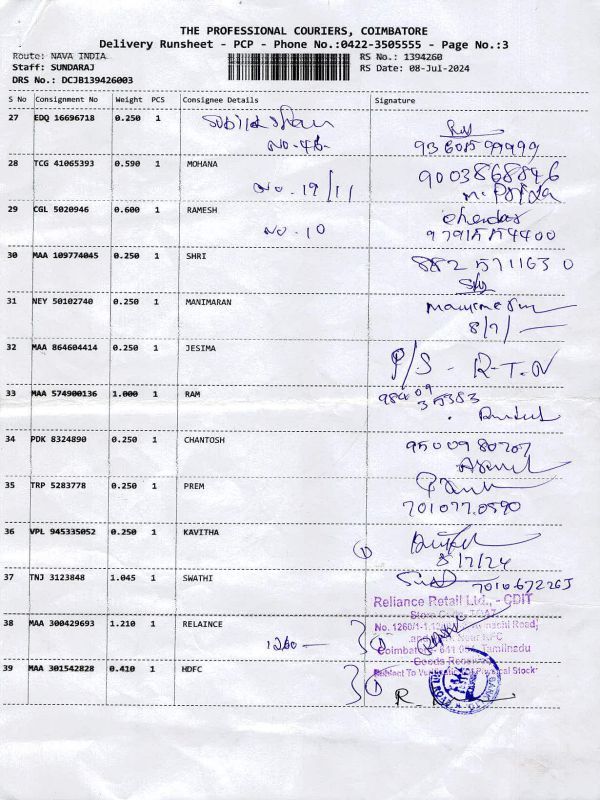 THE PROFESSIONAL COURIERS, COIMBATORE
Delivery Runsheet - PCP - Phone No.:0422-3505555 - Page No.:3
Route: NAVA INDIA
Staff: SUNDARAJ
DRS No.: DCJB139426003
RS No.: 1394260
RS Date: 08-Jul-2024
S No Consignment No Weight PCS Consignee Details Signature
27 EDQ 16696718 0.250 1
No. 46-
28 TCG 41065393 0.590 1 MOHANA 9003868846
No. 19/11 M. Priya
29 CGL 5020946 0.600 1 RAMESH
No. 10
30 MAA 109774045 0.250 1 SHRI
31 NEY 50102740 0.250 1 MANIMARAN
8/7/
32 MAA 864604414 0.250 1 JESIMA P/S - R.T.N
33 MAA 574900136 1.000 1 RAM
34 PDK 8324890 0.250 1 CHANTOSH 9500980707
35 TRP 5283778 0.250 1 PREM
701077.0590
36 VPL 945335052 0.250 1 KAVITHA
8/7/24
37 TNJ 3123848 1.045 1 SWATHI
Reliance Retail Ltd., - CDIT
38 MAA 300429693 1.210 1 RELAINCE
1260
Goods Received
39 MAA 301542828 0.410 1 HDFC
Subject To Verification of Physical Stock